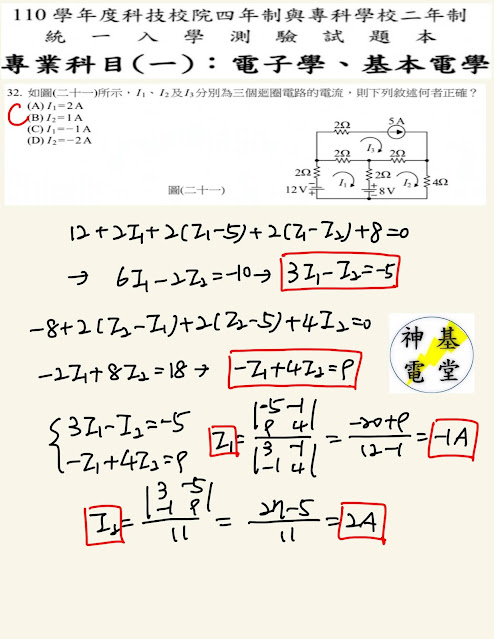 110 學年度科技校院四年制與專科學校二年制
統一入學測驗試題本
專業科目(一)：電子學、基本電學
32. 如圖(二十一)所示，I₁、I₂及I₃分別為三個迴圈電路的電流，則下列敘述何者正確？
C
(A) I₁=2A
(B) I₂=1A
(C) I₁=−1A
(D) I₂=−2A
2Ω 5A
I₃
2Ω 2Ω
2Ω I₁ 2Ω I₂ 4Ω
12V 8V
圖(二十一)
12+2I₁+2(I₁-5)+2(I₁-I₂)+8=0
→ 6I₁-2I₂=-10→ 3I₁-I₂=-5
-8+2(I₂-I₁)+2(I₂-5)+4I₂=0
-2I₁+8I₂=18 → -I₁+4I₂=9
神基
電堂
{3I₁-I₂=-5
-I₁+4I₂=9
I₁= |-5 -1| |9 4| / |3 -1| |-1 4| = -20+9 / 12-1 = -1A
I₂= |3 -5| |-1 9| / 11 = 27-5 / 11 = 2A